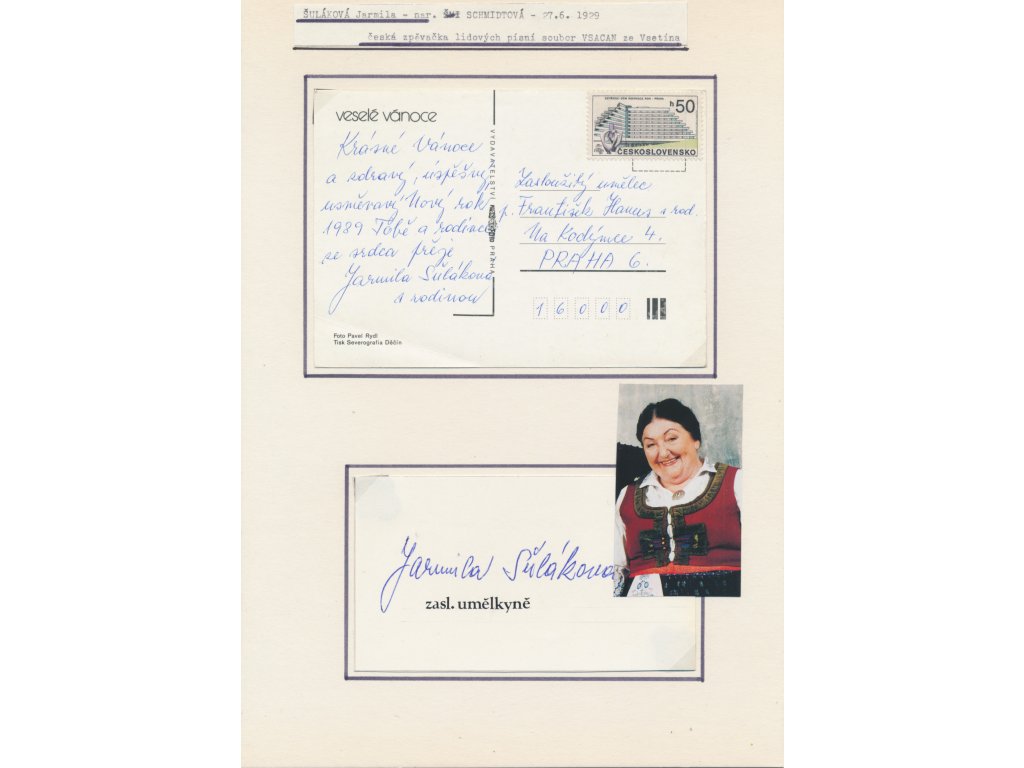 ŠULÁKOVÁ Jarmila - nar. SCHMIDTOVÁ - 27.6. 1929
česká zpěvačka lidových písní soubor VSACAN ze Vsetína
veselé vánoce
Krásné Vánoce
a zdravý, úspěšný,
usměvavý Nový rok
1989 Tobě a rodince
ze srdca přeje
Jarmila Šuláková
s rodinou
Foto Pavel Rydl
Tisk Severografia Děčín
VYDAVATELSTVÍ
PRAHA
h50
ČESKOSLOVENSKO
Zasloužilý umělec
p. František Hanus s rod.
Na Kodymce 4.
PRAHA 6.
16000
Jarmila Šuláková
zasl. umělkyně